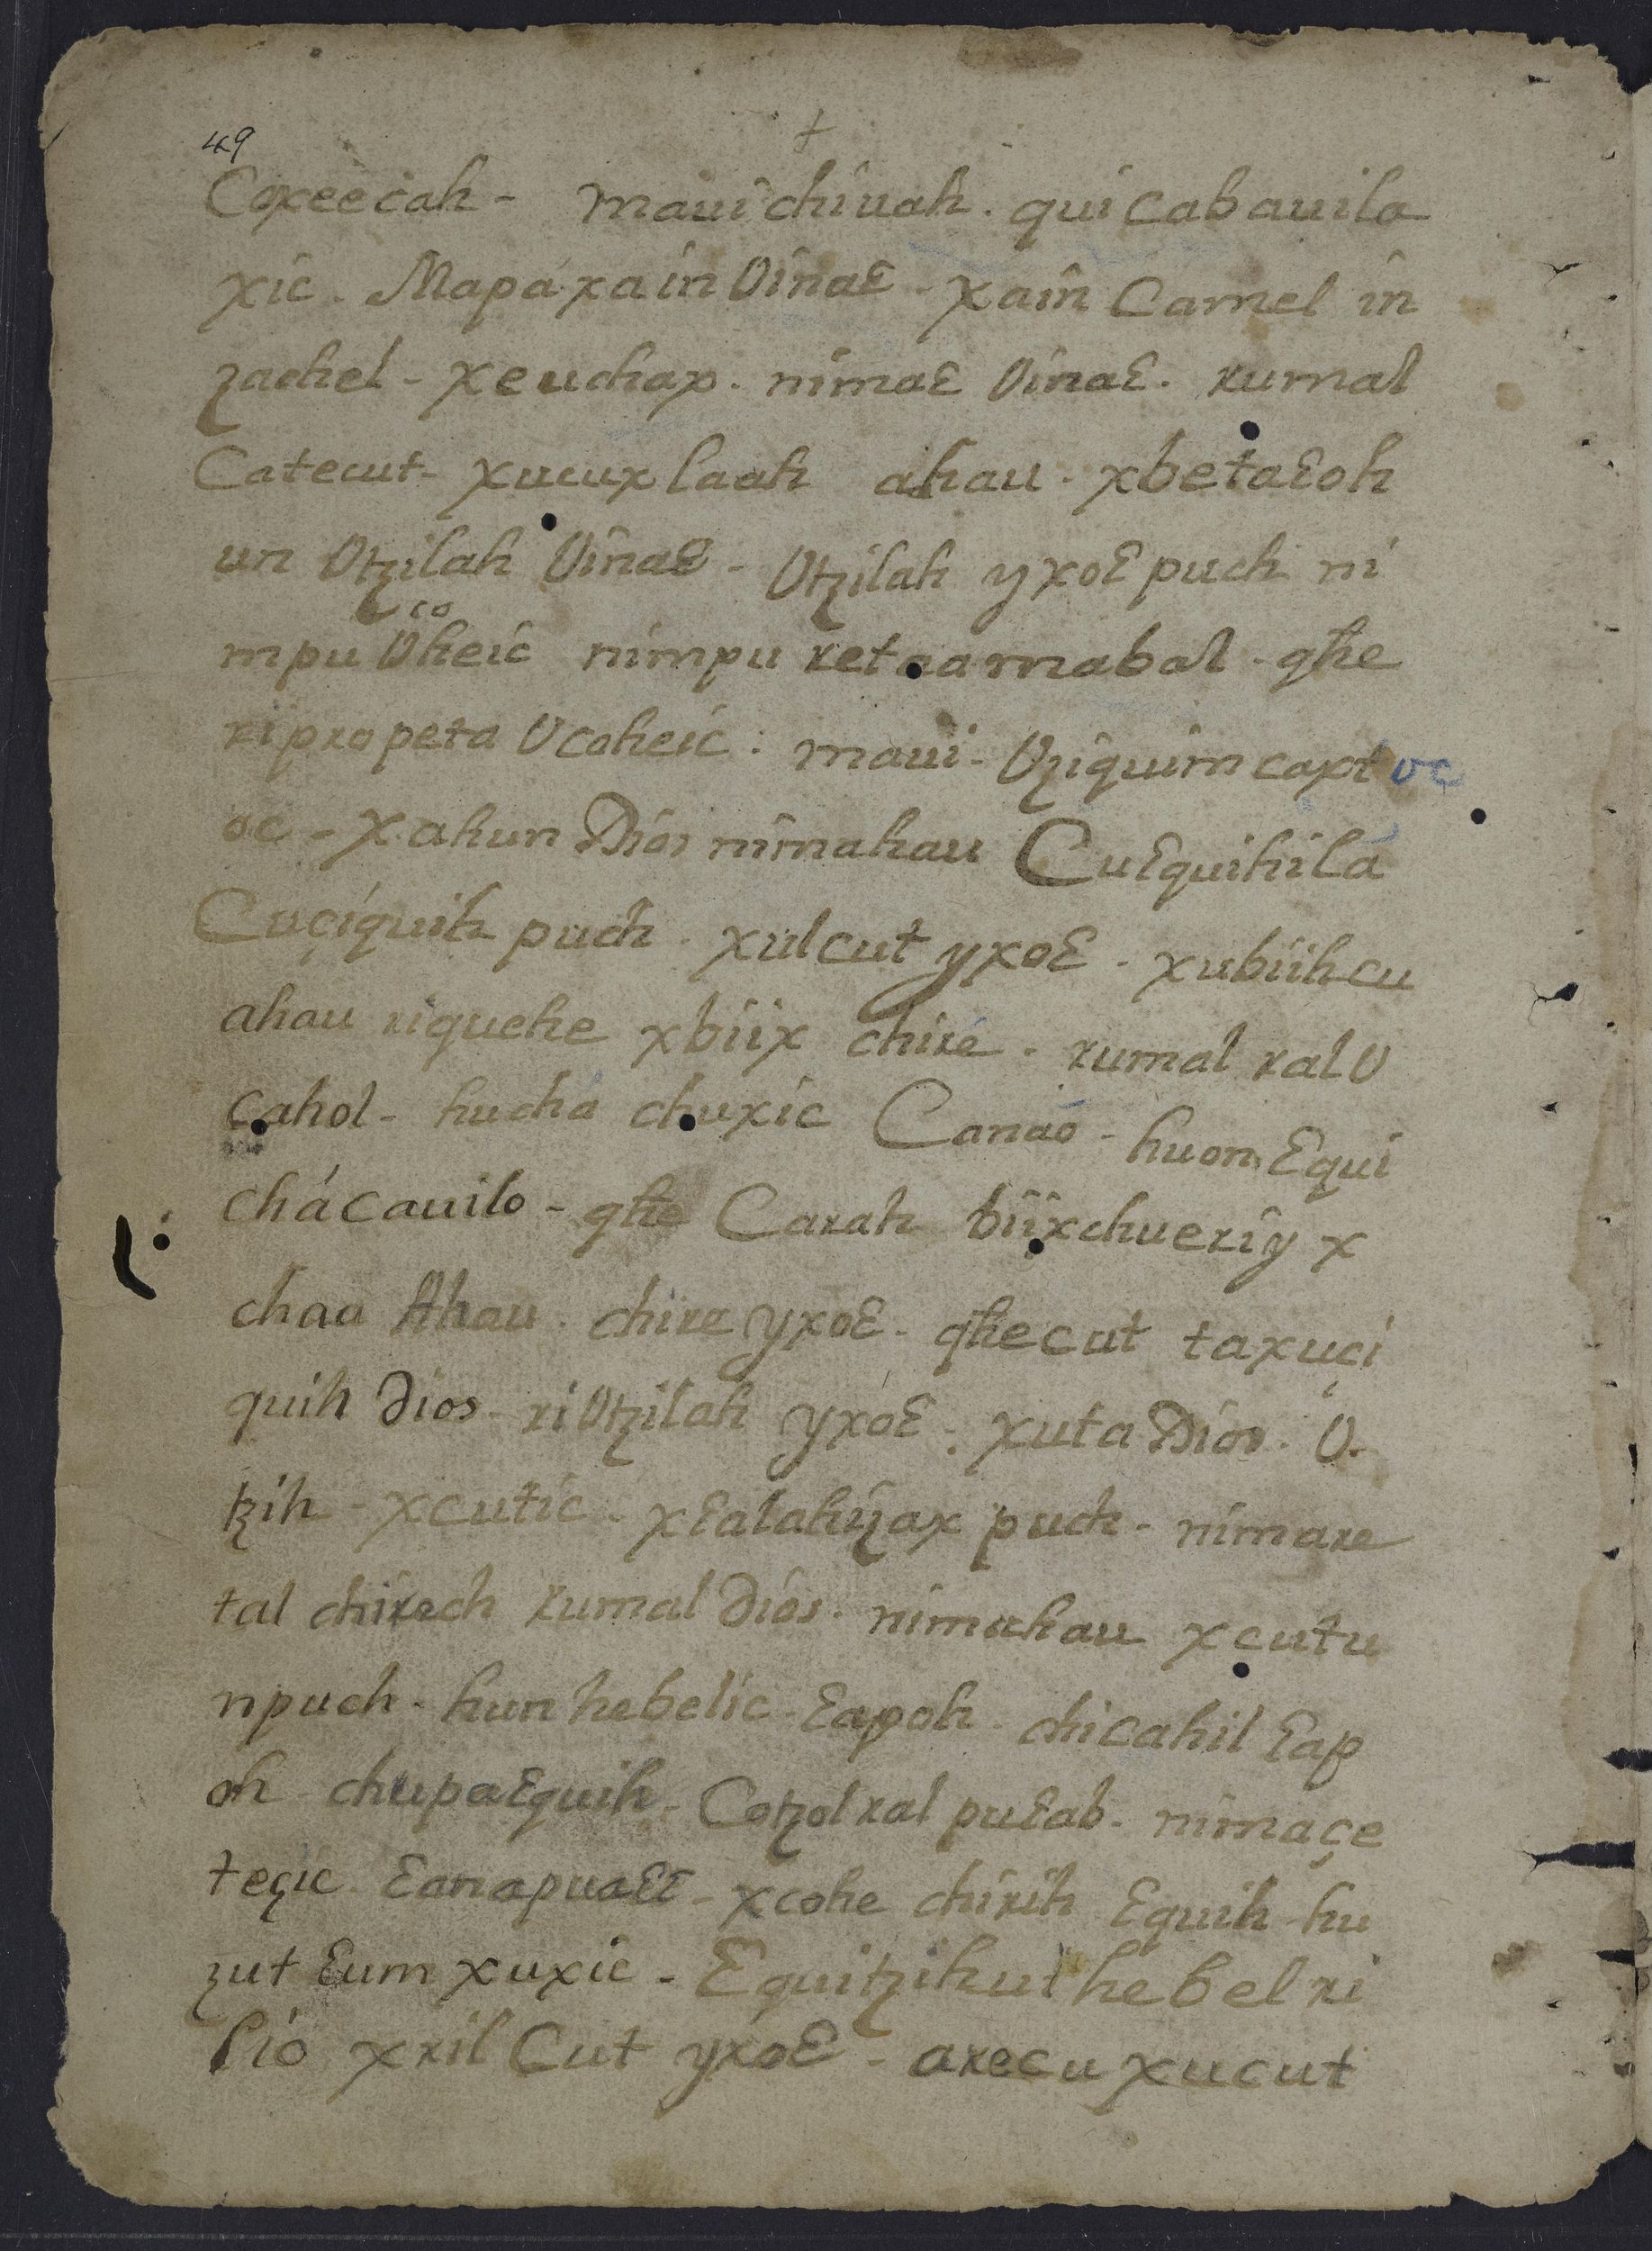 49
+
Coxeècah - maui chiuah . qui cabauila
xic . Mapá xa in Vinaꜫ - xain Camel in
zachel - xeuchax . nimaꜫ Vinaꜫ . rumal
Catecut - xucux laah ahau . xbetaꜫoh
un Vtzilah Vinaꜫ - Vtzilah yxoꜫ puch ni
co
mpu Vheic nimpu retaamabal - qhe
ri propeta Vcoheic : maui - Vziquim caxt vc
oc - xahun Dios nimahau Cuꜫquihila
Cuçiquih puch . xulcut yxoꜫ - xubiih cu
ahau riquehe xbiix chiré . rumal ral V
cahol - huchá chuxic Canáo - huon ꜫqui
chácauilo - qhe Carah biixchueriy x
chaa Ahau . chire yxoꜫ - qhecut taxuçi
quih Dios - ri Vtzilah yxoꜫ . xuta Dios . V.
tzih - xcutic - xꜫalahizax puch - nimare
tal chirech rumal Dios . nimahau xcutu
npuch - hun hebelic - ꜫapoh . chicahil ꜫap
oh chupaꜫquih - Cotzol ral puꜫab - nimaçe
teçic - ꜫanapuaꜫꜫ - xcohe chirih ꜫquih hu
zut ꜫum xuxic - ꜫquitzihut hebel ri
lio xril Cut yxoꜫ - arecu xucut